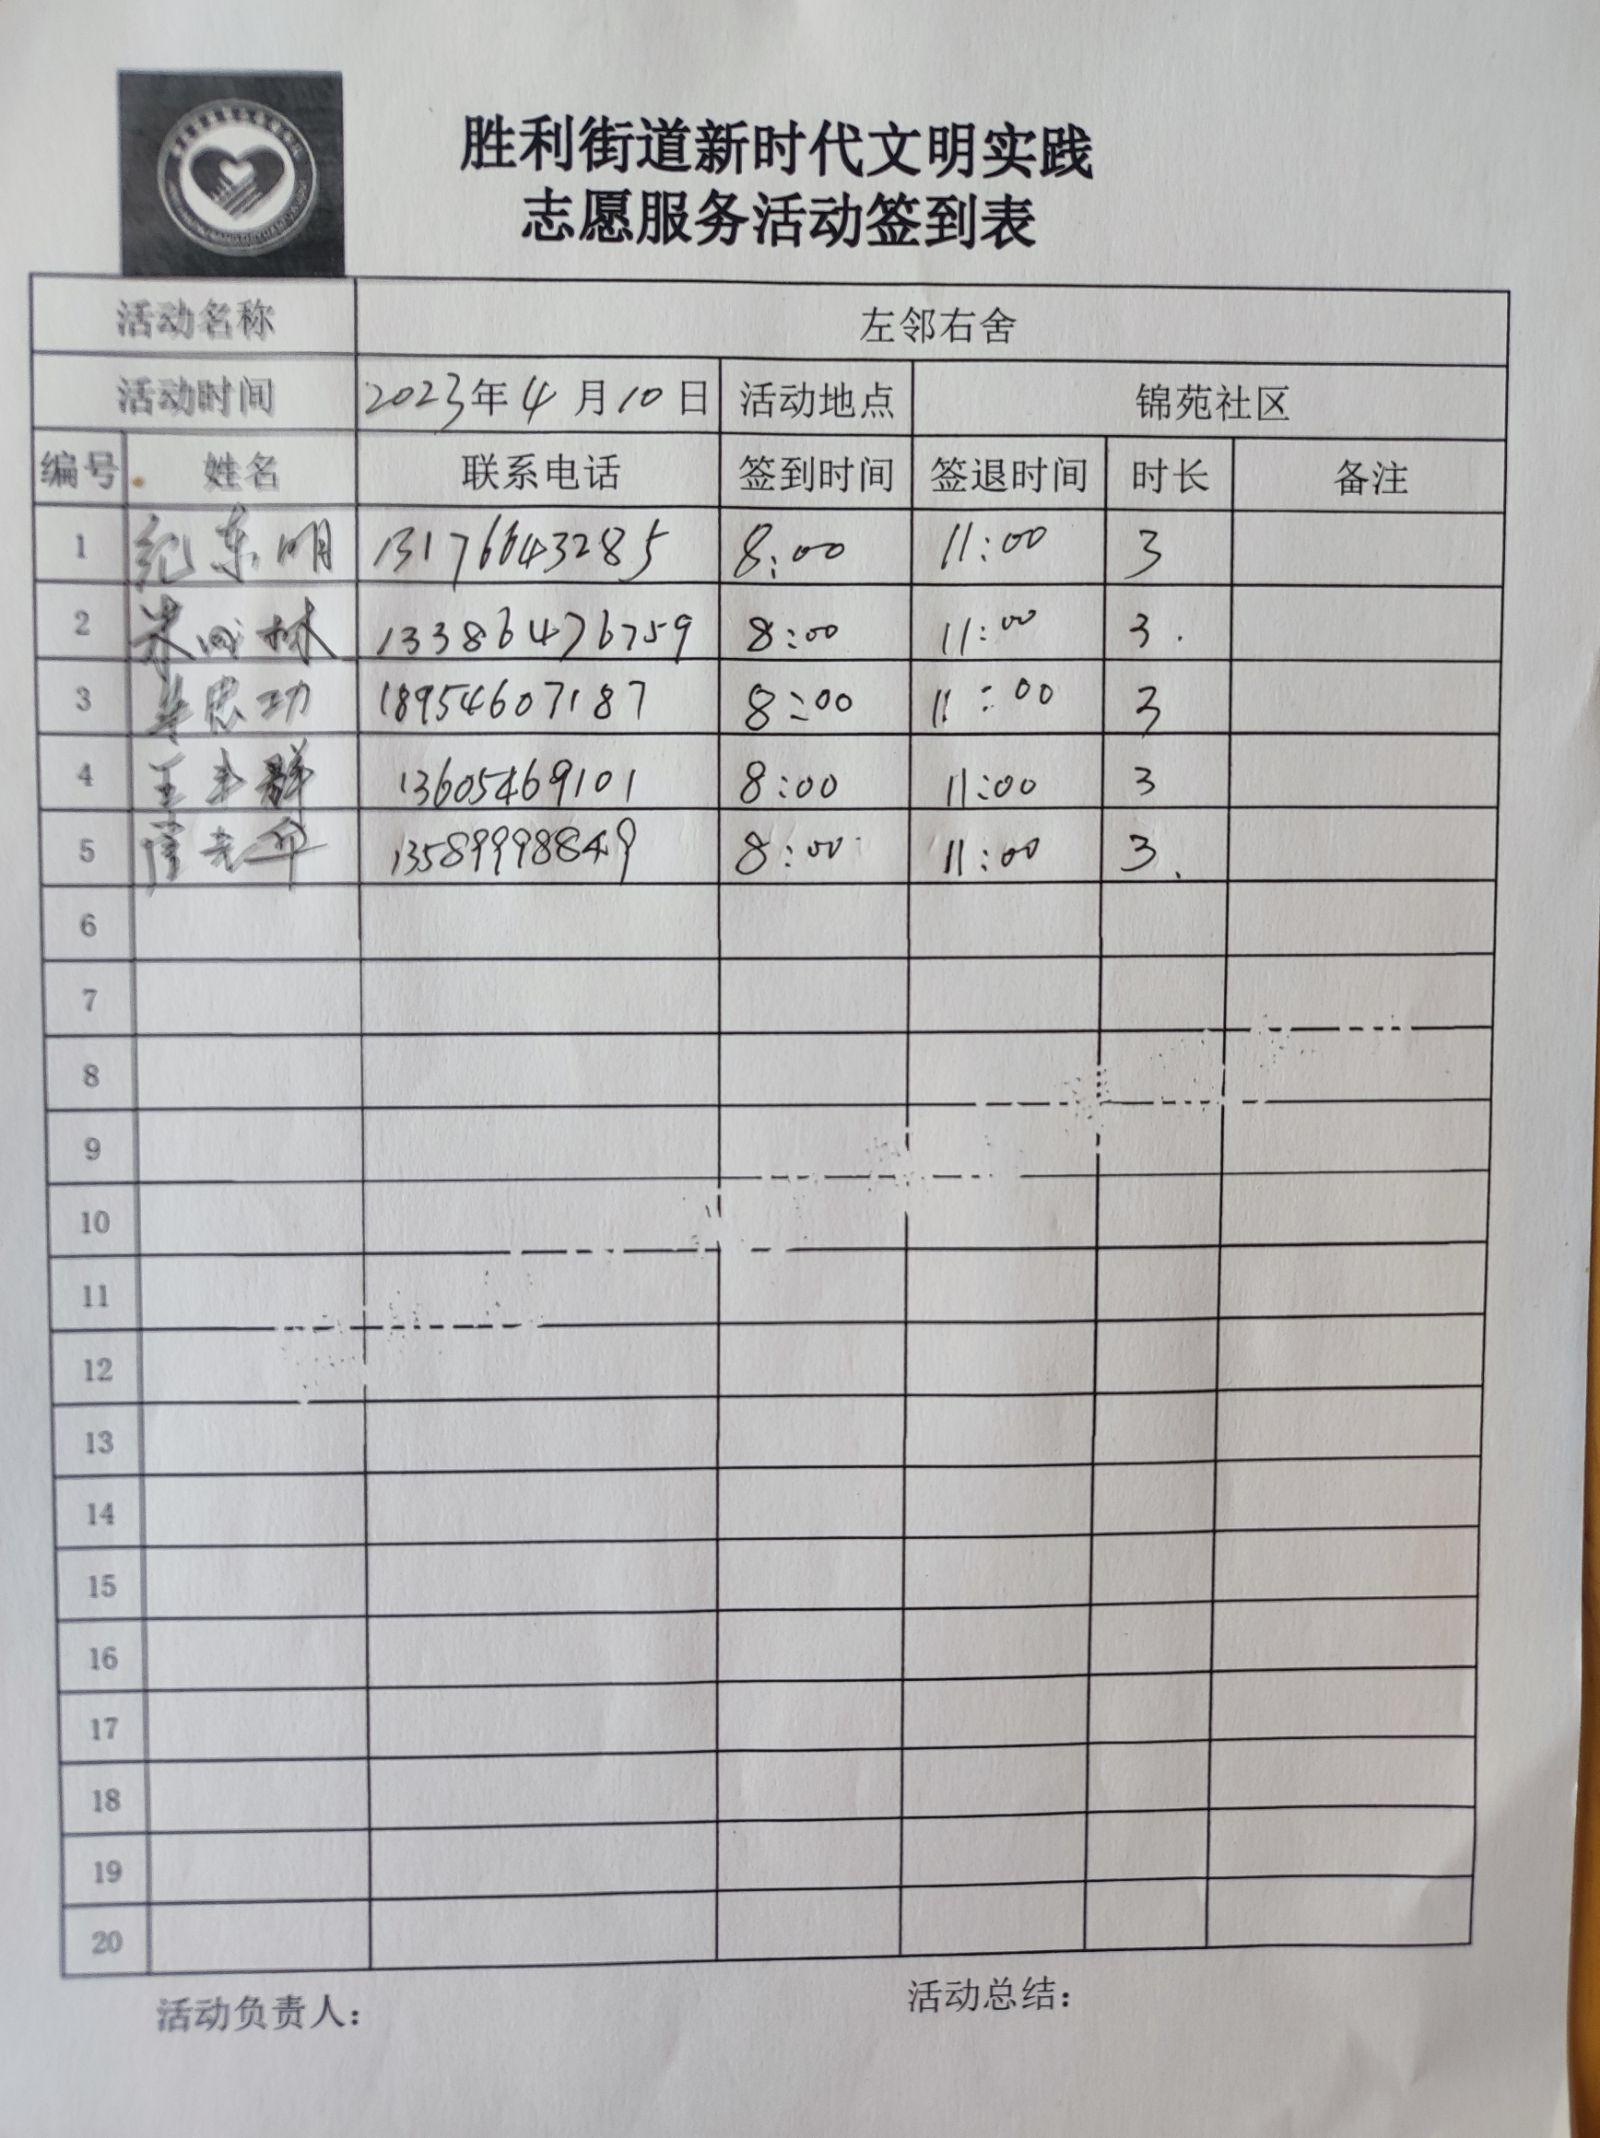 胜利街道新时代文明实践
志愿服务活动签到表
活动名称 左邻右舍
活动时间 2023年4月10日 活动地点 锦苑社区
编号 姓名 联系电话 签到时间 签退时间 时长 备注
1 纪东明 13176643285 8:00 11:00 3
2 林 13386476759 8:00 11:00 3.
3 忠功 18954607187 8:00 11:00 3
4 王丰群 13605469101 8:00 11:00 3
5 13589998849 8:00 11:00 3.
6
7
8
9
10
11
12
13
14
15
16
17
18
19
20
活动负责人： 活动总结：